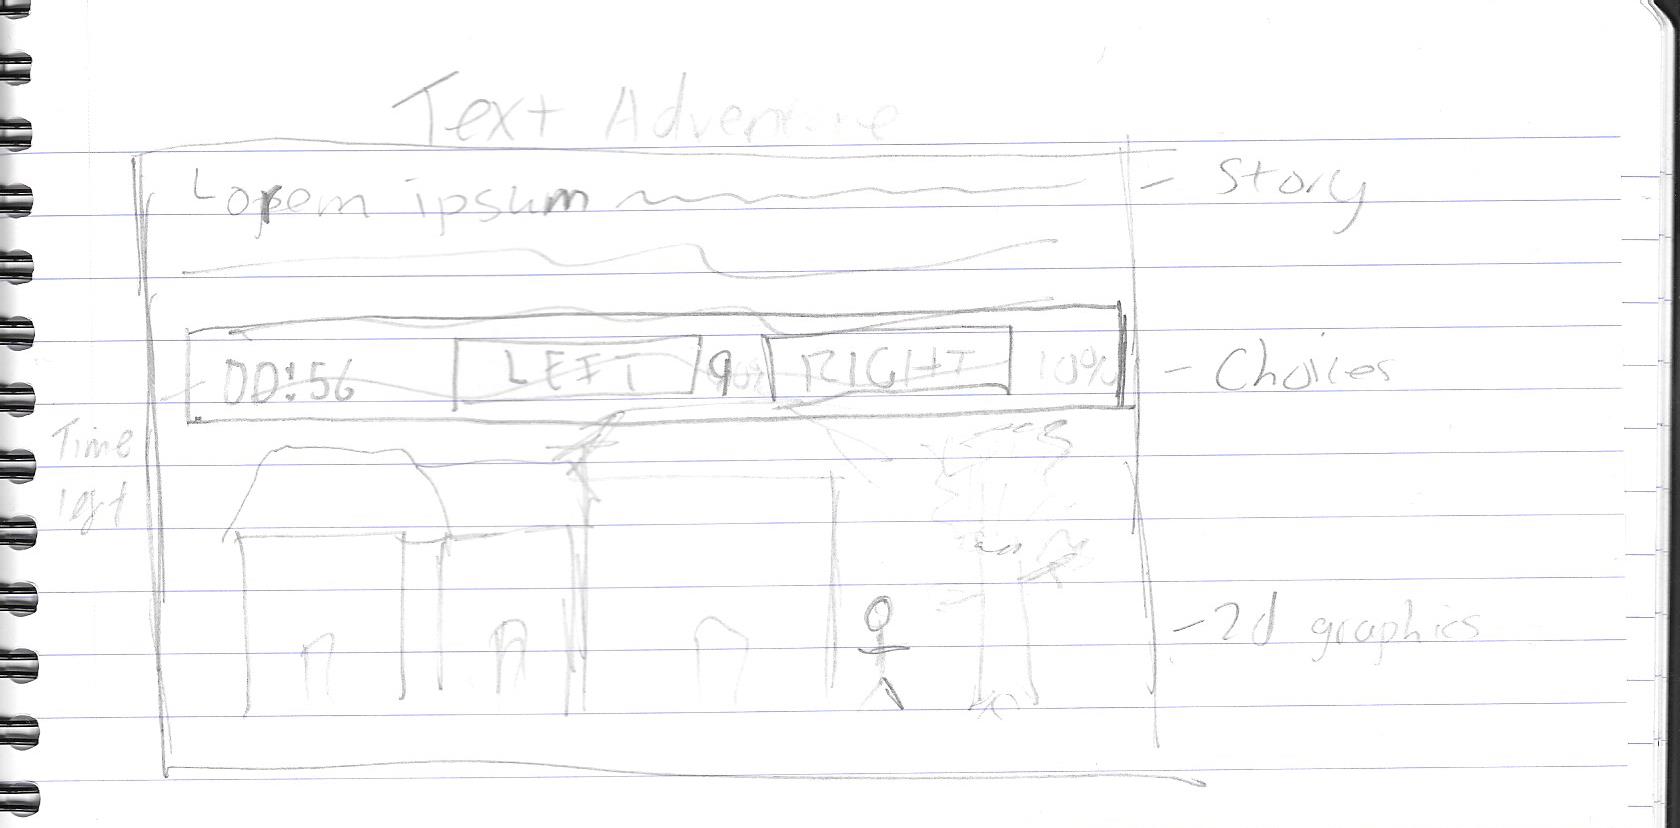 Text Adventure
Lorem ipsum
- Story
00:56 LEFT 90% RIGHT 10%
- Choices
Time
- 2d graphics